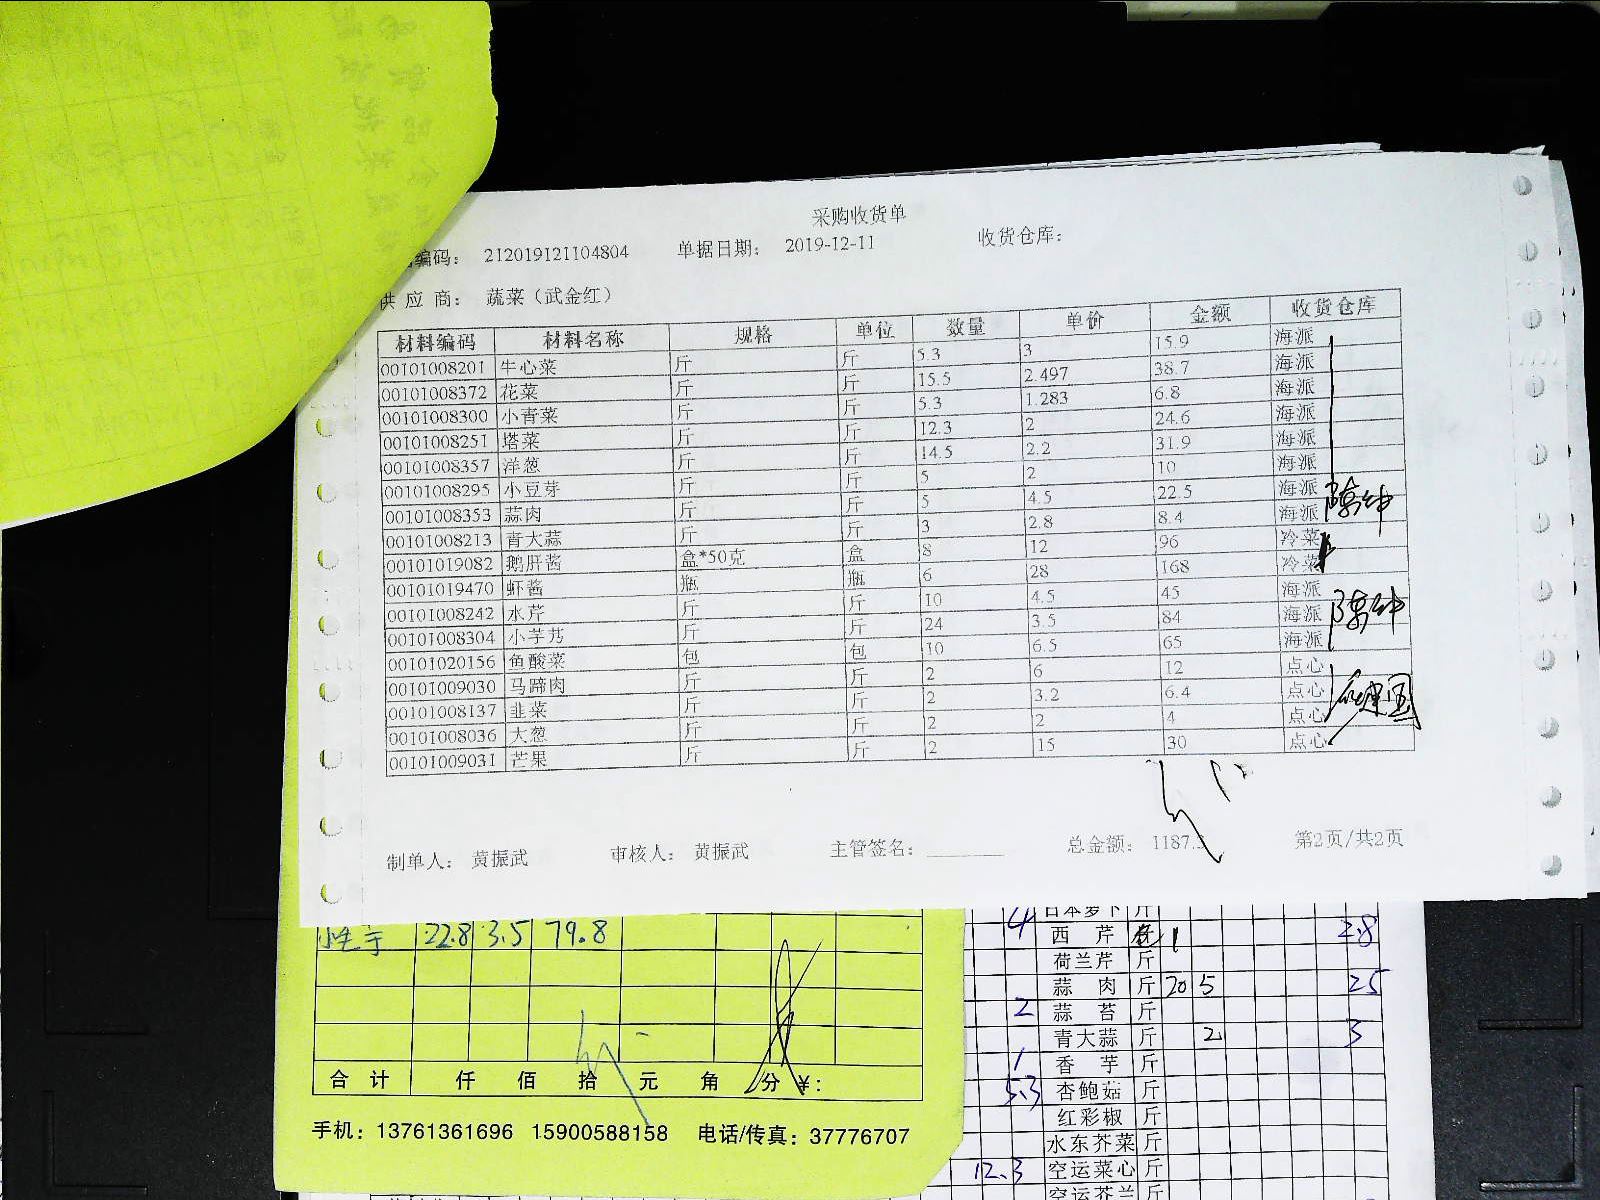 采购收货单
编码： 212019121104804 单据日期： 2019-12-11 收货仓库：
供 应 商： 蔬菜（武金红）
材料编码 材料名称 规格 单位 数量 单价 金额 收货仓库
00101008201 牛心菜 斤 斤 5.3 3 15.9 海派
00101008372 花菜 斤 斤 15.5 2.497 38.7 海派
00101008300 小青菜 斤 斤 5.3 1.283 6.8 海派
00101008251 塔菜 斤 斤 12.3 2 24.6 海派
00101008357 洋葱 斤 斤 14.5 2.2 31.9 海派
00101008295 小豆芽 斤 斤 5 2 10 海派
00101008353 蒜肉 斤 斤 5 4.5 22.5 海派
00101008213 青大蒜 斤 斤 3 2.8 8.4 海派
00101019082 鹅肝酱 盒*50克 盒 8 12 96 冷菜
00101019470 虾酱 瓶 瓶 6 28 168 冷菜
00101008242 水芹 斤 斤 10 4.5 45 海派
00101008304 小芋艿 斤 斤 24 3.5 84 海派
00101020156 鱼酸菜 包 包 10 6.5 65 海派
00101009030 马蹄肉 斤 斤 2 6 12 点心
00101008137 韭菜 斤 斤 2 3.2 6.4 点心
00101008036 大葱 斤 斤 2 2 4 点心
00101009031 芒果 斤 斤 2 15 30 点心
制单人： 黄振武 审核人： 黄振武 主管签名： 总金额： 1187. 第2页/共2页
22.8 3.5 79.8
合 计 仟 佰 拾 元 角 分 ¥：
手机：13761361696 15900588158 电话/传真：37776707
4 日本萝卜 斤
西 芹 1 2.8
荷兰芹 斤
蒜 肉 斤 20 5 25
2 蒜 苔 斤
青大蒜 斤 2 3
1 香 芋 斤
5.3 杏鲍菇 斤
红彩椒 斤
水东芥菜 斤
12.3 空运菜心 斤
空运芥兰 斤